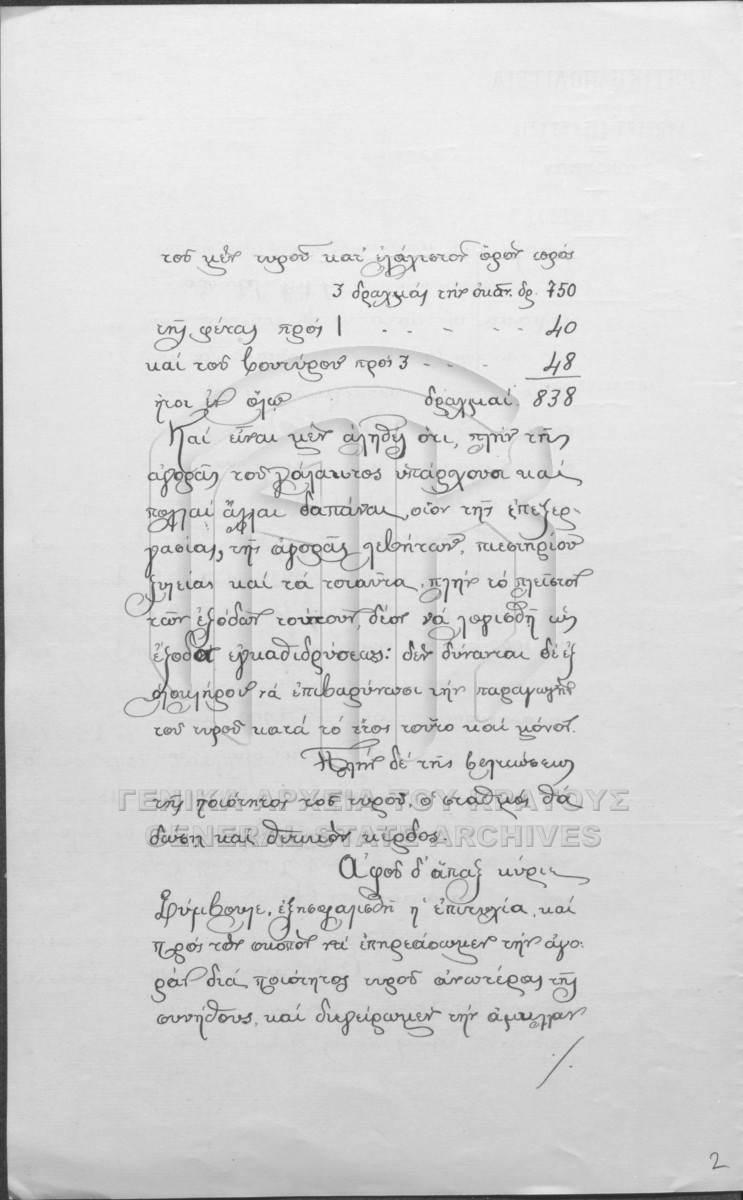 τοῦ μὲν τυροῦ κατ' ἐλάχιστον ὅρον πρὸς
3 δραχμάς τὴν ὀκᾶν. δρ. 750
τῆς φέτας πρός 1 - - - - - 40
καὶ τοῦ βουτύρου πρός 3 - - - 48
ἤτοι ἐν ὅλῳ δραχμαί 838
Καί εἶναι μέν ἀληθές ὅτι, πλήν τῆς
ἀγορᾶς τοῦ γάλακτος ὑπάρχουσι καί
πολλαί ἄλλαι δαπάναι, οἷον τῆς ἐπεξερ-
γασίας, τῆς ἀγορᾶς λεβήτων, πιεστηρίου
ξυλείας καί τά τοιαῦτα, πλήν τό πλεῖστον
τῶν ἐξόδων τούτων, δέον νά λογισθῇ ὡς
ἔξοδα ἐγκαθιδρύσεως: δέν δύνανται δέ ἐξ
ὁλοκλήρου νά ἐπιβαρύνωσι τήν παραγωγήν
τοῦ τυροῦ κατά τό ἔτος τοῦτο καί μόνον.
Πλήν δέ τῆς βελτιώσεως
τῆς ποιότητος τοῦ τυροῦ, ὁ σταθμός θά
δώσῃ καί θετικόν κέρδος.
Ἀφοῦ δ' ἅπαξ κύριε
Σύμβουλε, ἐξησφαλίσθη ἡ ἐπιτυχία, καί
πρός τόν σκοπόν νά ἐπηρεάσωμεν τήν ἀγο-
ράν διά ποιότητος τυροῦ ἀνωτέρας τῆς
συνήθους, καί διεγείρωμεν τήν ἅμιλλαν
./.
2
ΓΕΝΙΚΑ ΑΡΧΕΙΑ ΤΟΥ ΚΡΑΤΟΥΣ
GENERAL STATE ARCHIVES